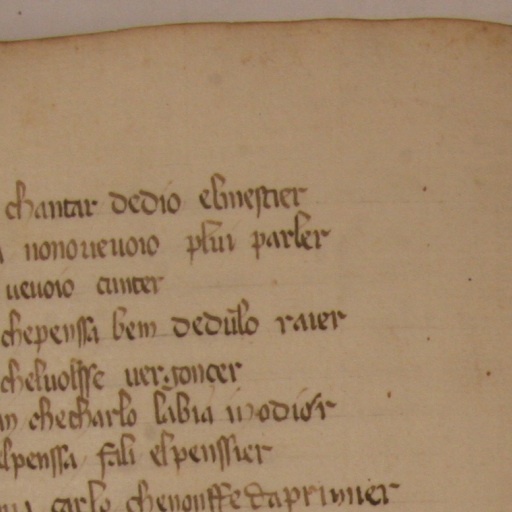 chantar dedio elmestier
nonoueuoio plui parler
ueuoio cunter
chepenssa bem deduso raier
cheluolsse uergoncer
checharlo labia inodier
penssa fali elpenssier
carlo chenonsse daprimier